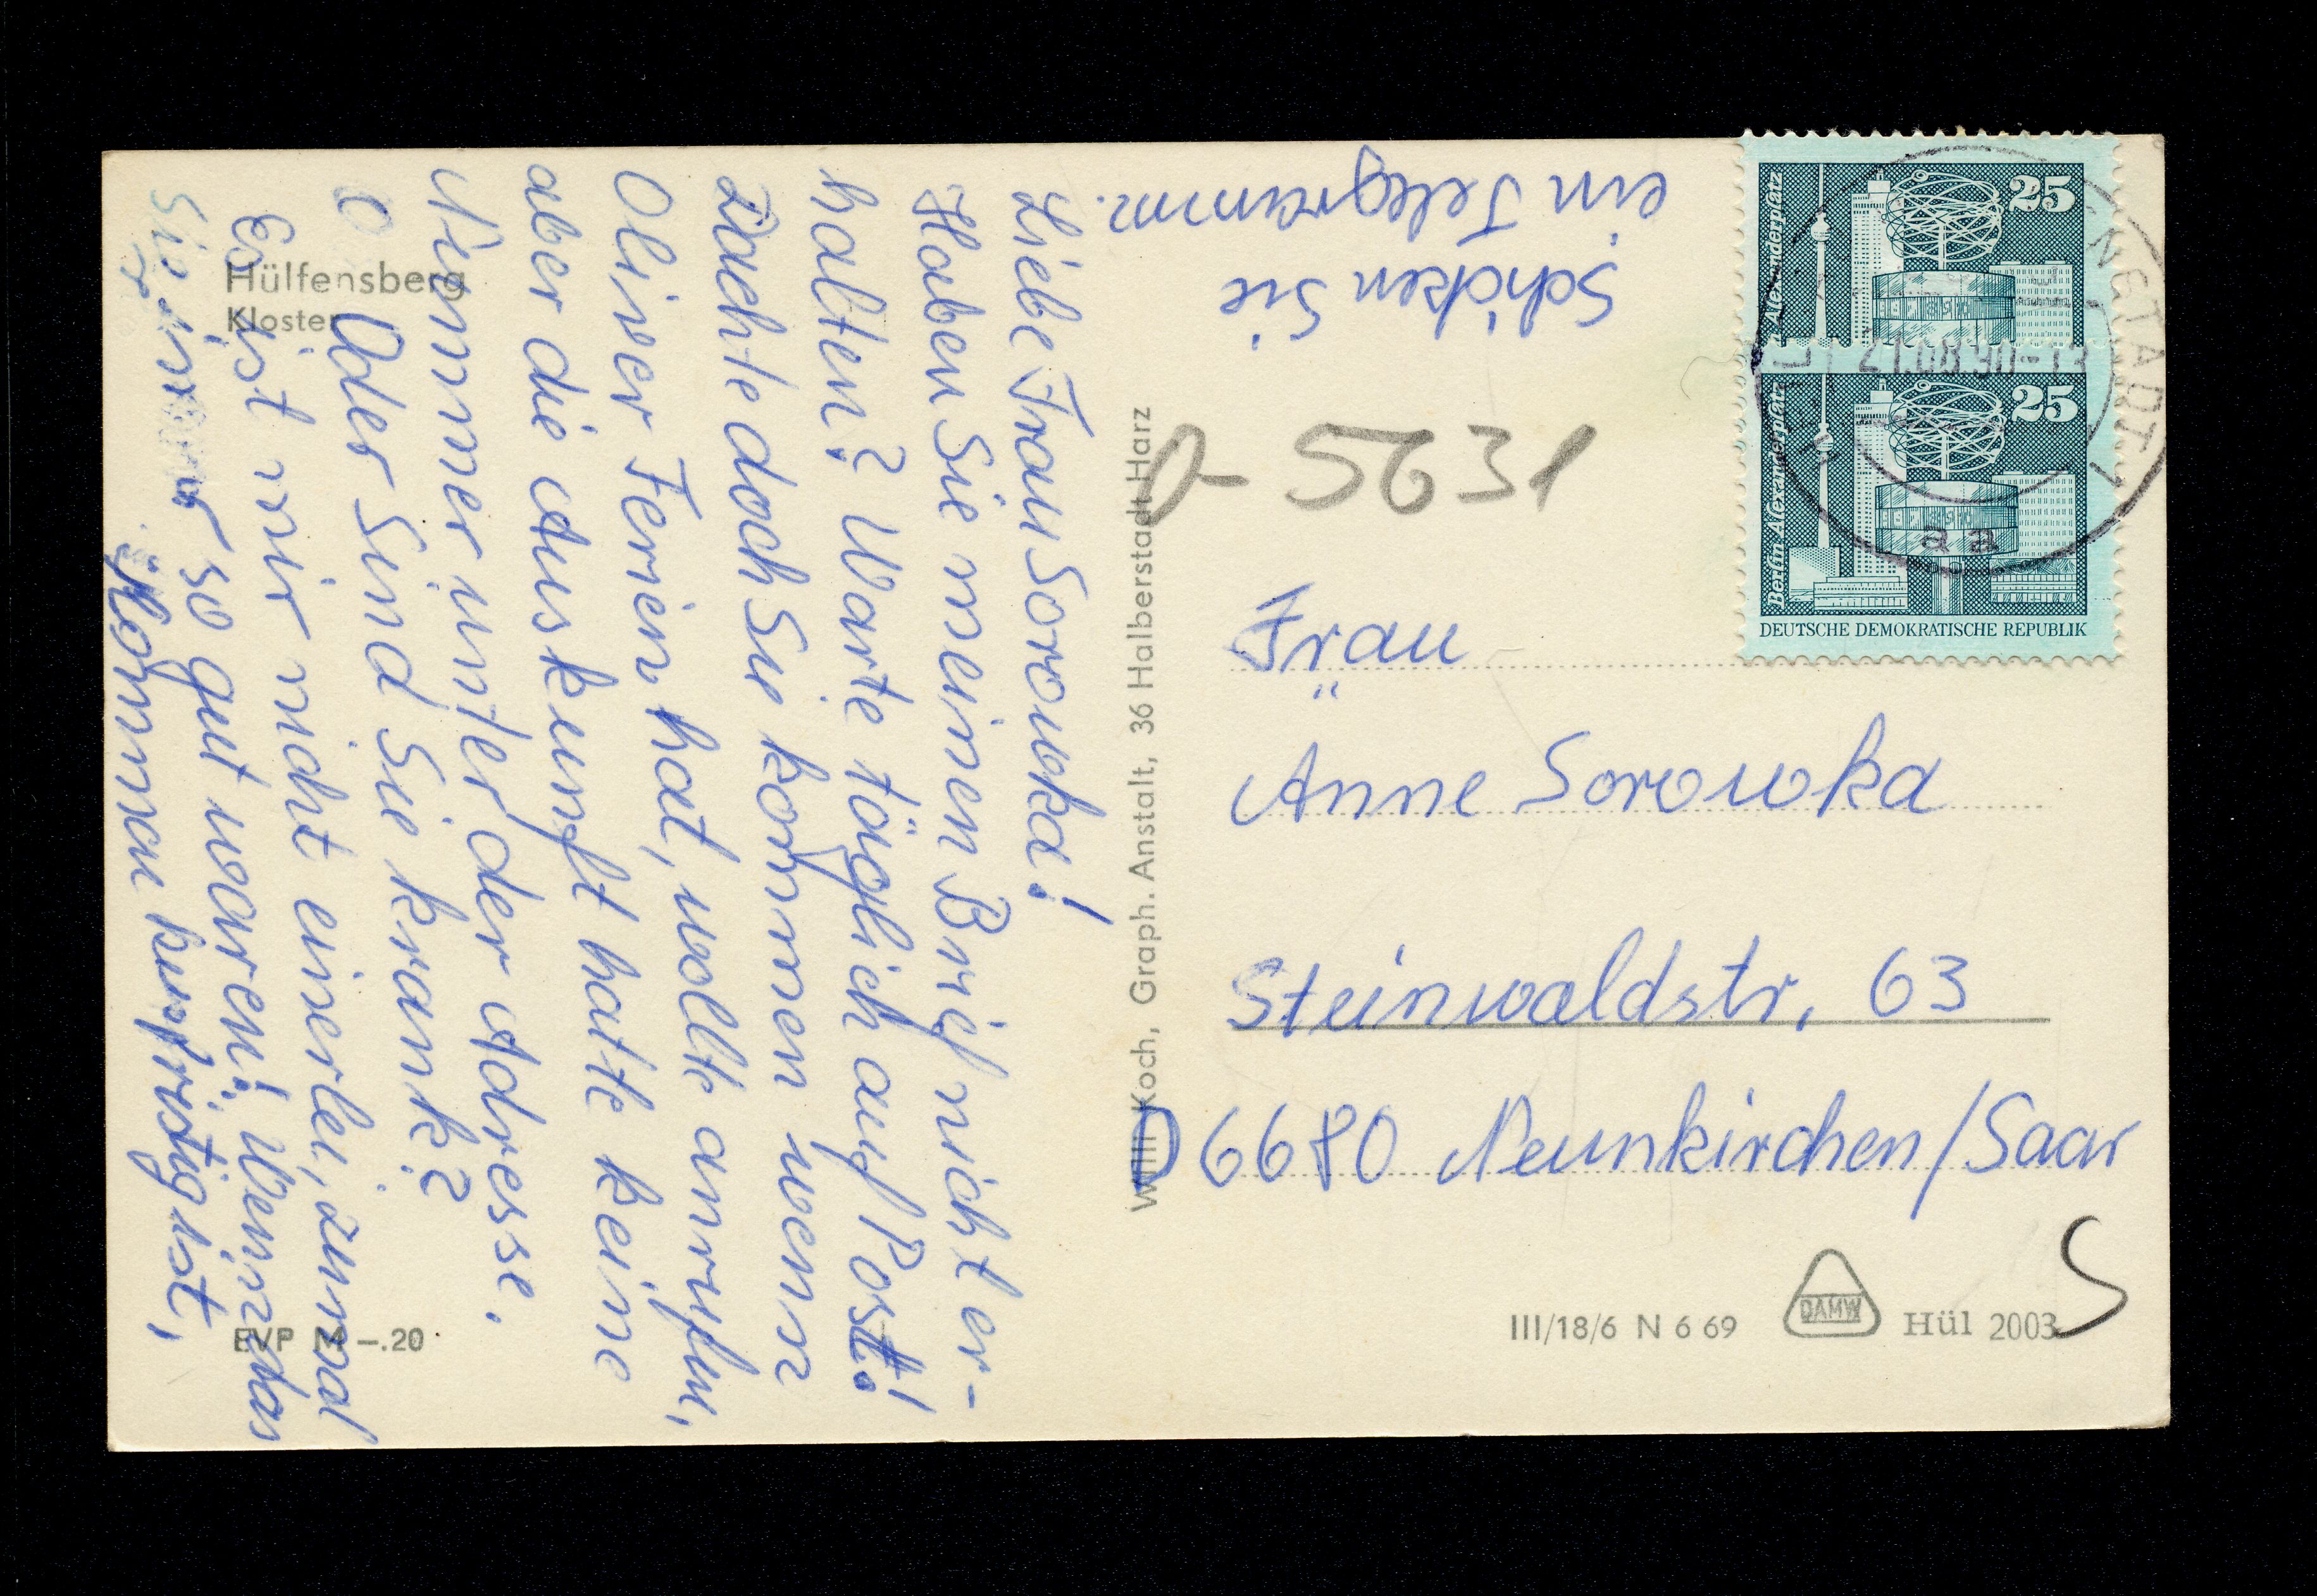 Liebe Frau Sorowka!
Haben Sie meinen Brief nicht er-
halten? Warte täglich auf Post!
Dachte doch Sie kommen wenn
Oliver Ferien hat, wollte anrufen,
aber die Auskunft hatte keine
Nummer unter der Adresse.
Oder Sind Sie krank?
Es ist mir nicht einerlei, zumal
Sie immer so gut waren! Wenn das
Kommen kurfristig ist,
schicken Sie
ein Telegramm.
Hülfensberg
Kloster
EVP M -.20
Willi Koch, Graph. Anstalt, 36 Halberstadt Harz
O-5631
Frau
Anne Sorowka
Steinwaldstr. 63
D 6680 Neunkirchen/Saar
S
III/18/6 N 6 69
DAMW
Hül 2003
Berlin, Alexanderplatz
25
Berlin, Alexanderplatz
25
DEUTSCHE DEMOKRATISCHE REPUBLIK
21.08.90-13
aa